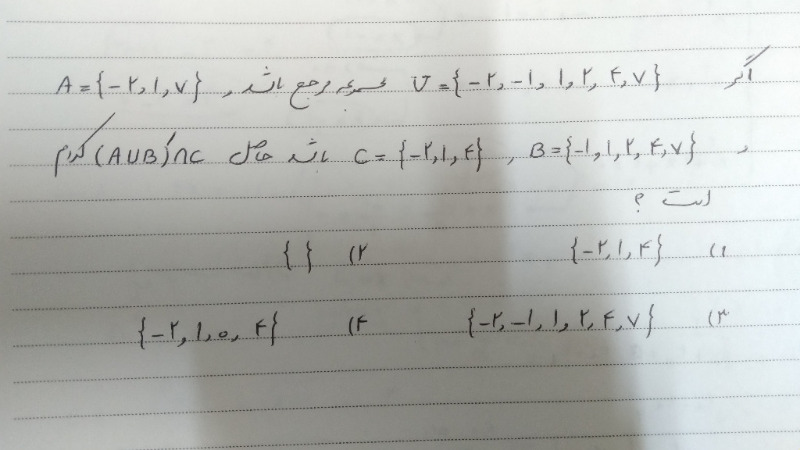 اگر U = {-۲, -۱, ۱, ۲, ۴, ۷} مجموعه مرجع باشد و A = {-۲, ۱, ۷}
و B = {-۱, ۱, ۲, ۴, ۷} , C = {-۲, ۱, ۴} باشد حاصل (A∪B)′∩C کدام
است ؟
۱) {-۲, ۱, ۴} ۲) { }
۳) {-۲, -۱, ۱, ۲, ۴, ۷} ۴) {-۲, ۱, ۰, ۴}